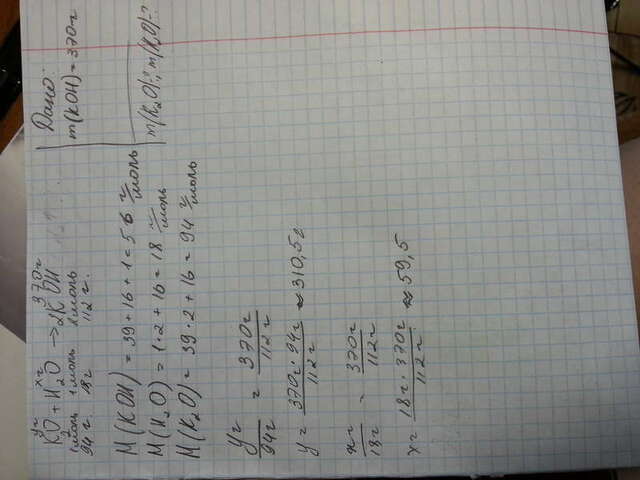 Дано:
m(KOH) = 370г
m(K₂O)-?, m(H₂O)-?
yг xг 370г
K₂O + H₂O → 2KOH
1моль 1моль 2моль
94г. 18г 112г.
M(KOH) = 39 + 16 + 1 = 56 г/моль
M(H₂O) = 1·2 + 16 = 18 г/моль
M(K₂O) = 39·2 + 16 = 94 г/моль
yг/94г = 370г/112г
y = 370г·94г/112г ≈ 310,5г
xг/18г = 370г/112г
x = 18г·370г/112г ≈ 59,5